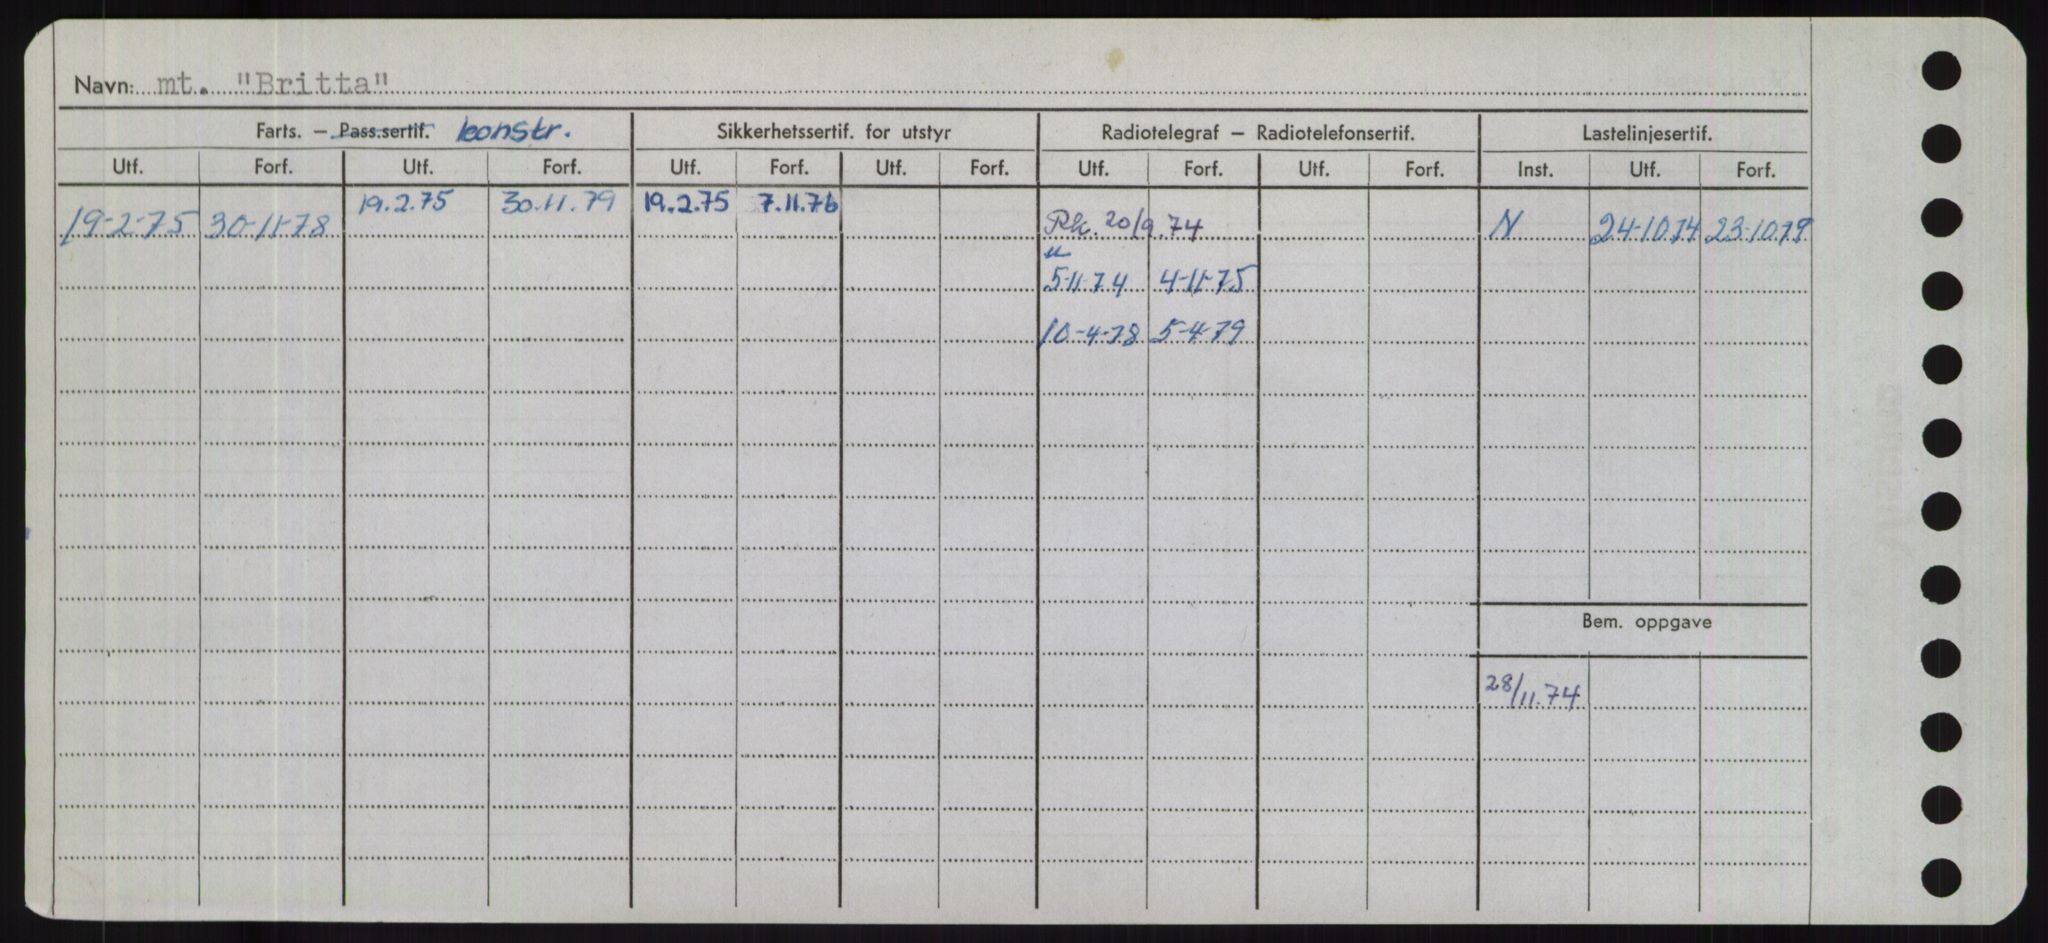 Navn: mt. "Britta"
Farts. – Pass.sertif. konstr. Sikkerhetssertif. for utstyr Radiotelegraf – Radiotelefonsertif. Lastelinjesertif.
Utf. Forf. Utf. Forf. Utf. Forf. Utf. Forf. Utf. Forf. Utf. Forf. Inst. Utf. Forf.
19-2-75 30-11-78 19.2.75 30.11.79 19.2.75 7.11.76 20/9.74 N 24-10.74 23-10.79
5-11-74 4-11-75
10-4-78 5-4-79
Bem. oppgave
28/11.74